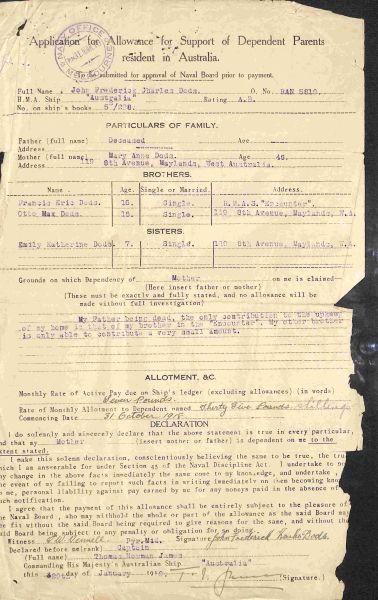 NAVY OFFICE
MELBOURNE
Application for Allowance for Support of Dependent Parents
resident in Australia.
To be submitted for approval of Naval Board prior to payment.
Full Name John Frederick Charles Dods. O. No. RAN 5810.
H.M.A. Ship "Australia" Rating A.B.
No. on ship's books
PARTICULARS OF FAMILY.
Father (full name) Deceased Age
Address
Mother (full name) Mary Anne Dods. Age 45.
Address 119 8th Avenue, Maylands, West Australia.
BROTHERS.
Name. Age. Single or Married. Address.
Francis Eric Dods. 18. Single. H.M.A.S. "Encounter".
Otto Max Dods. 15. Single. 119 8th Avenue, Maylands, W.A.
SISTERS.
Emily Katherine Dods. 7. Single. 119 8th Avenue, Maylands, W.A.
Grounds on which Dependency of Mother on me is claimed
(Here insert father or mother)
(These must be exactly and fully stated, and no allowance will be
made without full investigation)
My Father being dead, the only contribution to the upkeep
of my home is that of my brother in the "Encounter". My other brother
is only able to contribute a very small amount.
ALLOTMENT, &C.
Monthly Rate of Active Pay due on Ship's ledger (excluding allowances) (in words)
Seven Pounds.
Rate of Monthly Allotment to Dependent named Thirty Five Pounds shillings
Commencing Date 31 October
DECLARATION
I do solemnly and sincerely declare that the above statement is true in every particular,
and that my Mother (insert mother or father) is dependent on me to the
extent stated.
I make this solemn declaration, conscientiously believing the same to be true, the tru
which I am answerable for under Section 43 of the Naval Discipline Act. I undertake to no
any change in the above facts immediately the same come to my knowledge, and undertake
the event of my failing to report such facts in writing immediately on them becoming know
to me, personal liability against pay earned by me for any moneys paid in the absence of
such notification.
I agree that the payment of this allowance shall be entirely subject to the pleasure of
the Naval Board, who may withhold the whole or part of the allowance as the said Board may
see fit without the said Board being required to give reasons for the same, and without the
said Board being subject to any penalty or obligation for so doing.
Witness Pyr. Mid. Signature John Frederick Charles Dods.
Declared before me (rank) Captain
(Full name) Thomas Norman James
Commanding His Majesty's Australian Ship "Australia"
this day of January (Signature.)